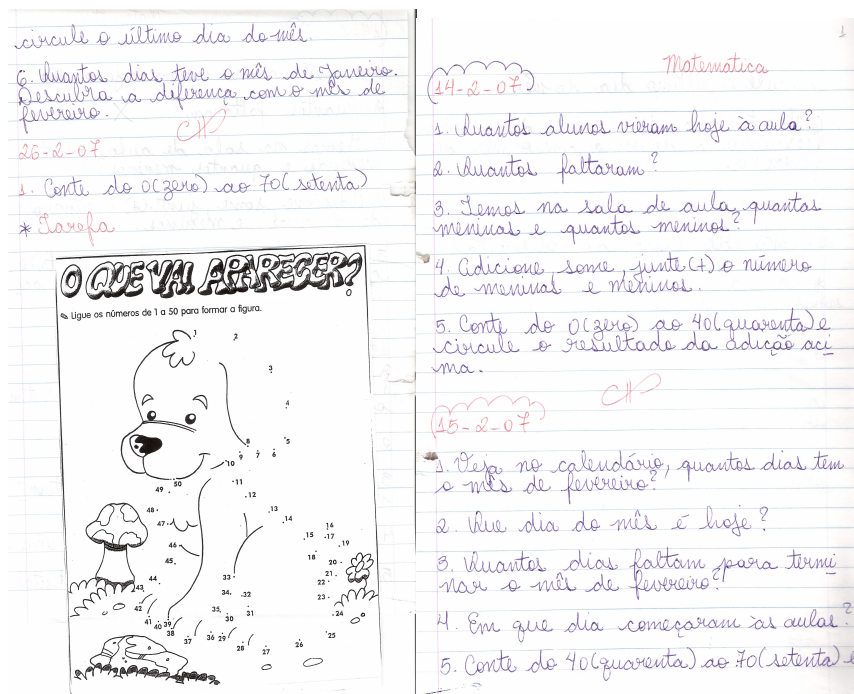 circule o último dia do mês.
6. Quantos dias teve o mês de Janeiro.
Descubra a diferença com o mês de
fevereiro.
26-2-07
1. Conte do 0(zero) ao 70(setenta)
* Tarefa
O QUE VAI APARECER?
Ligue os números de 1 a 50 para formar a figura.
1
2
3
4
5
6
7
8
9
10
11
12
13
14
15
16
17
18
19
20
21
22
23
24
25
26
27
28
29
30
31
32
33
34
35
36
37
38
39
40
41
42
43
44
45
46
47
48
49
50
1
Matemática
14-2-07
1. Quantos alunos vieram hoje à aula?
2. Quantos faltaram?
3. Temos na sala de aula, quantas
meninas e quantos meninos?
4. Adicione, some, junte(+) o número
de meninas e meninos.
5. Conte do 0(zero) ao 40(quarenta) e
circule o resultado da adição aci
ma.
15-2-07
1. Veja no calendário, quantos dias tem
o mês de fevereiro?
2. Que dia do mês é hoje?
3. Quantos dias faltam para termi
nar o mês de fevereiro?
4. Em que dia começaram às aulas?
5. Conte do 40(quarenta) ao 70(setenta) e